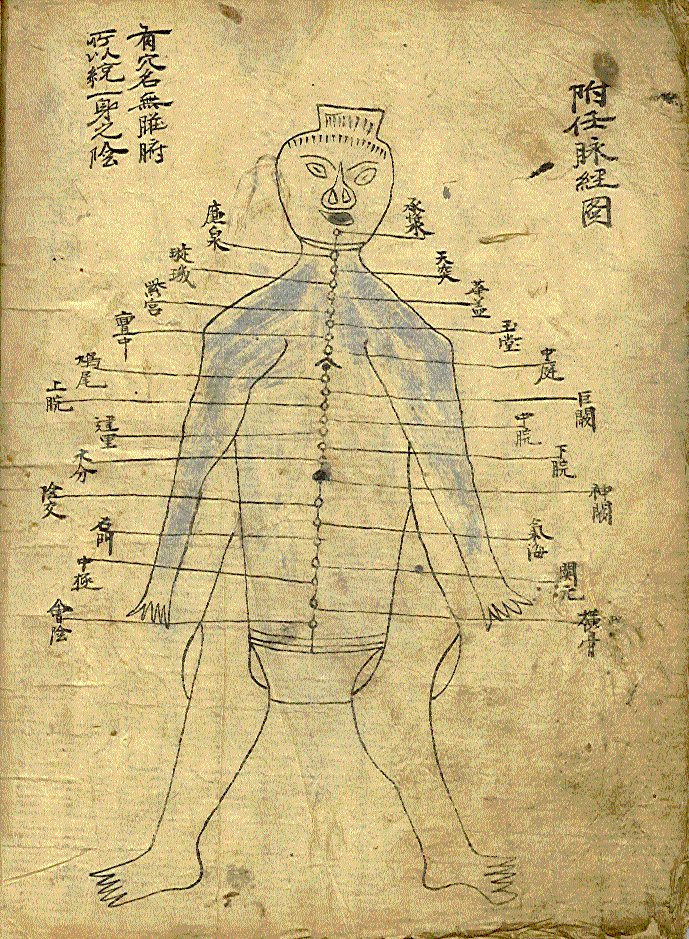 附任脉經圖
承漿
天突
華盖
玉堂
中庭
巨闕
中脘
下脘
神闕
氣海
関元
橫骨
廉泉
璇璣
紫宮
鳩尾
上脘
建里
水分
陰交
石門
中極
會陰
有穴名無臟腑
所以統一身之陰